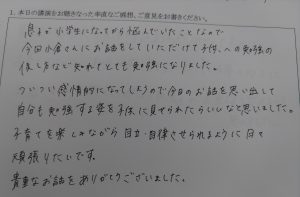 1. 本日の講演をお聴きなった率直なご感想、ご意見をお書きください。
息子が小学生になってから悩んでいたことなので
今回小倉さんにお話をしていただけて子供への勉強の
促し方など知れてとても勉強になりました。
ついつい感情的になってしまうので今日のお話を思い出して
自分も勉強する姿を子供に見せられたらいいなと思いました。
子育てを楽しみながら自立・自律させられるように日々
頑張りたいです。
貴重なお話をありがとうございました。